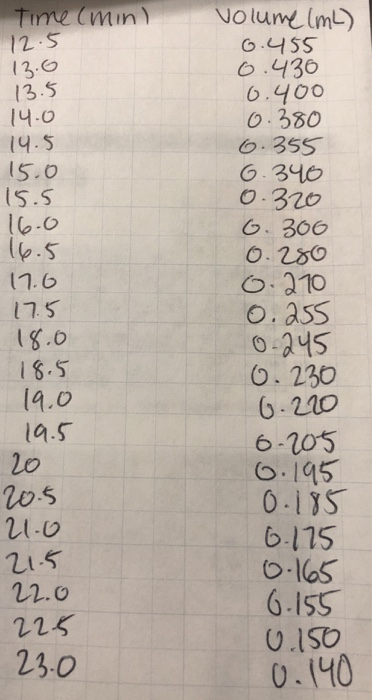 Time (min) Volume (mL)
12.5 0.455
13.0 0.430
13.5 0.400
14.0 0.380
14.5 0.355
15.0 0.340
15.5 0.320
16.0 0.300
16.5 0.280
17.0 0.270
17.5 0.255
18.0 0.245
18.5 0.230
19.0 0.220
19.5 0.205
20 0.195
20.5 0.185
21.0 0.175
21.5 0.165
22.0 0.155
22.5 0.150
23.0 0.140